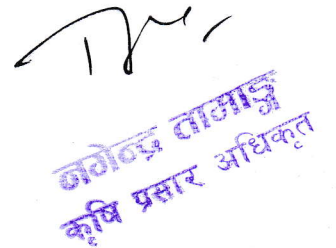 नगेन्द्र तामाङ्ग
कृषि प्रसार अधिकृत